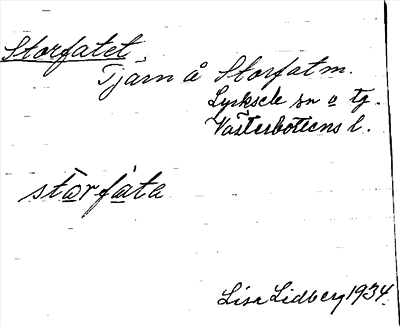 Storfatet
Tjärn å Storfatm.
Lycksele sn o tg.
Västerbottens l.
stōrfàta
Lisa Lidberg 1934.